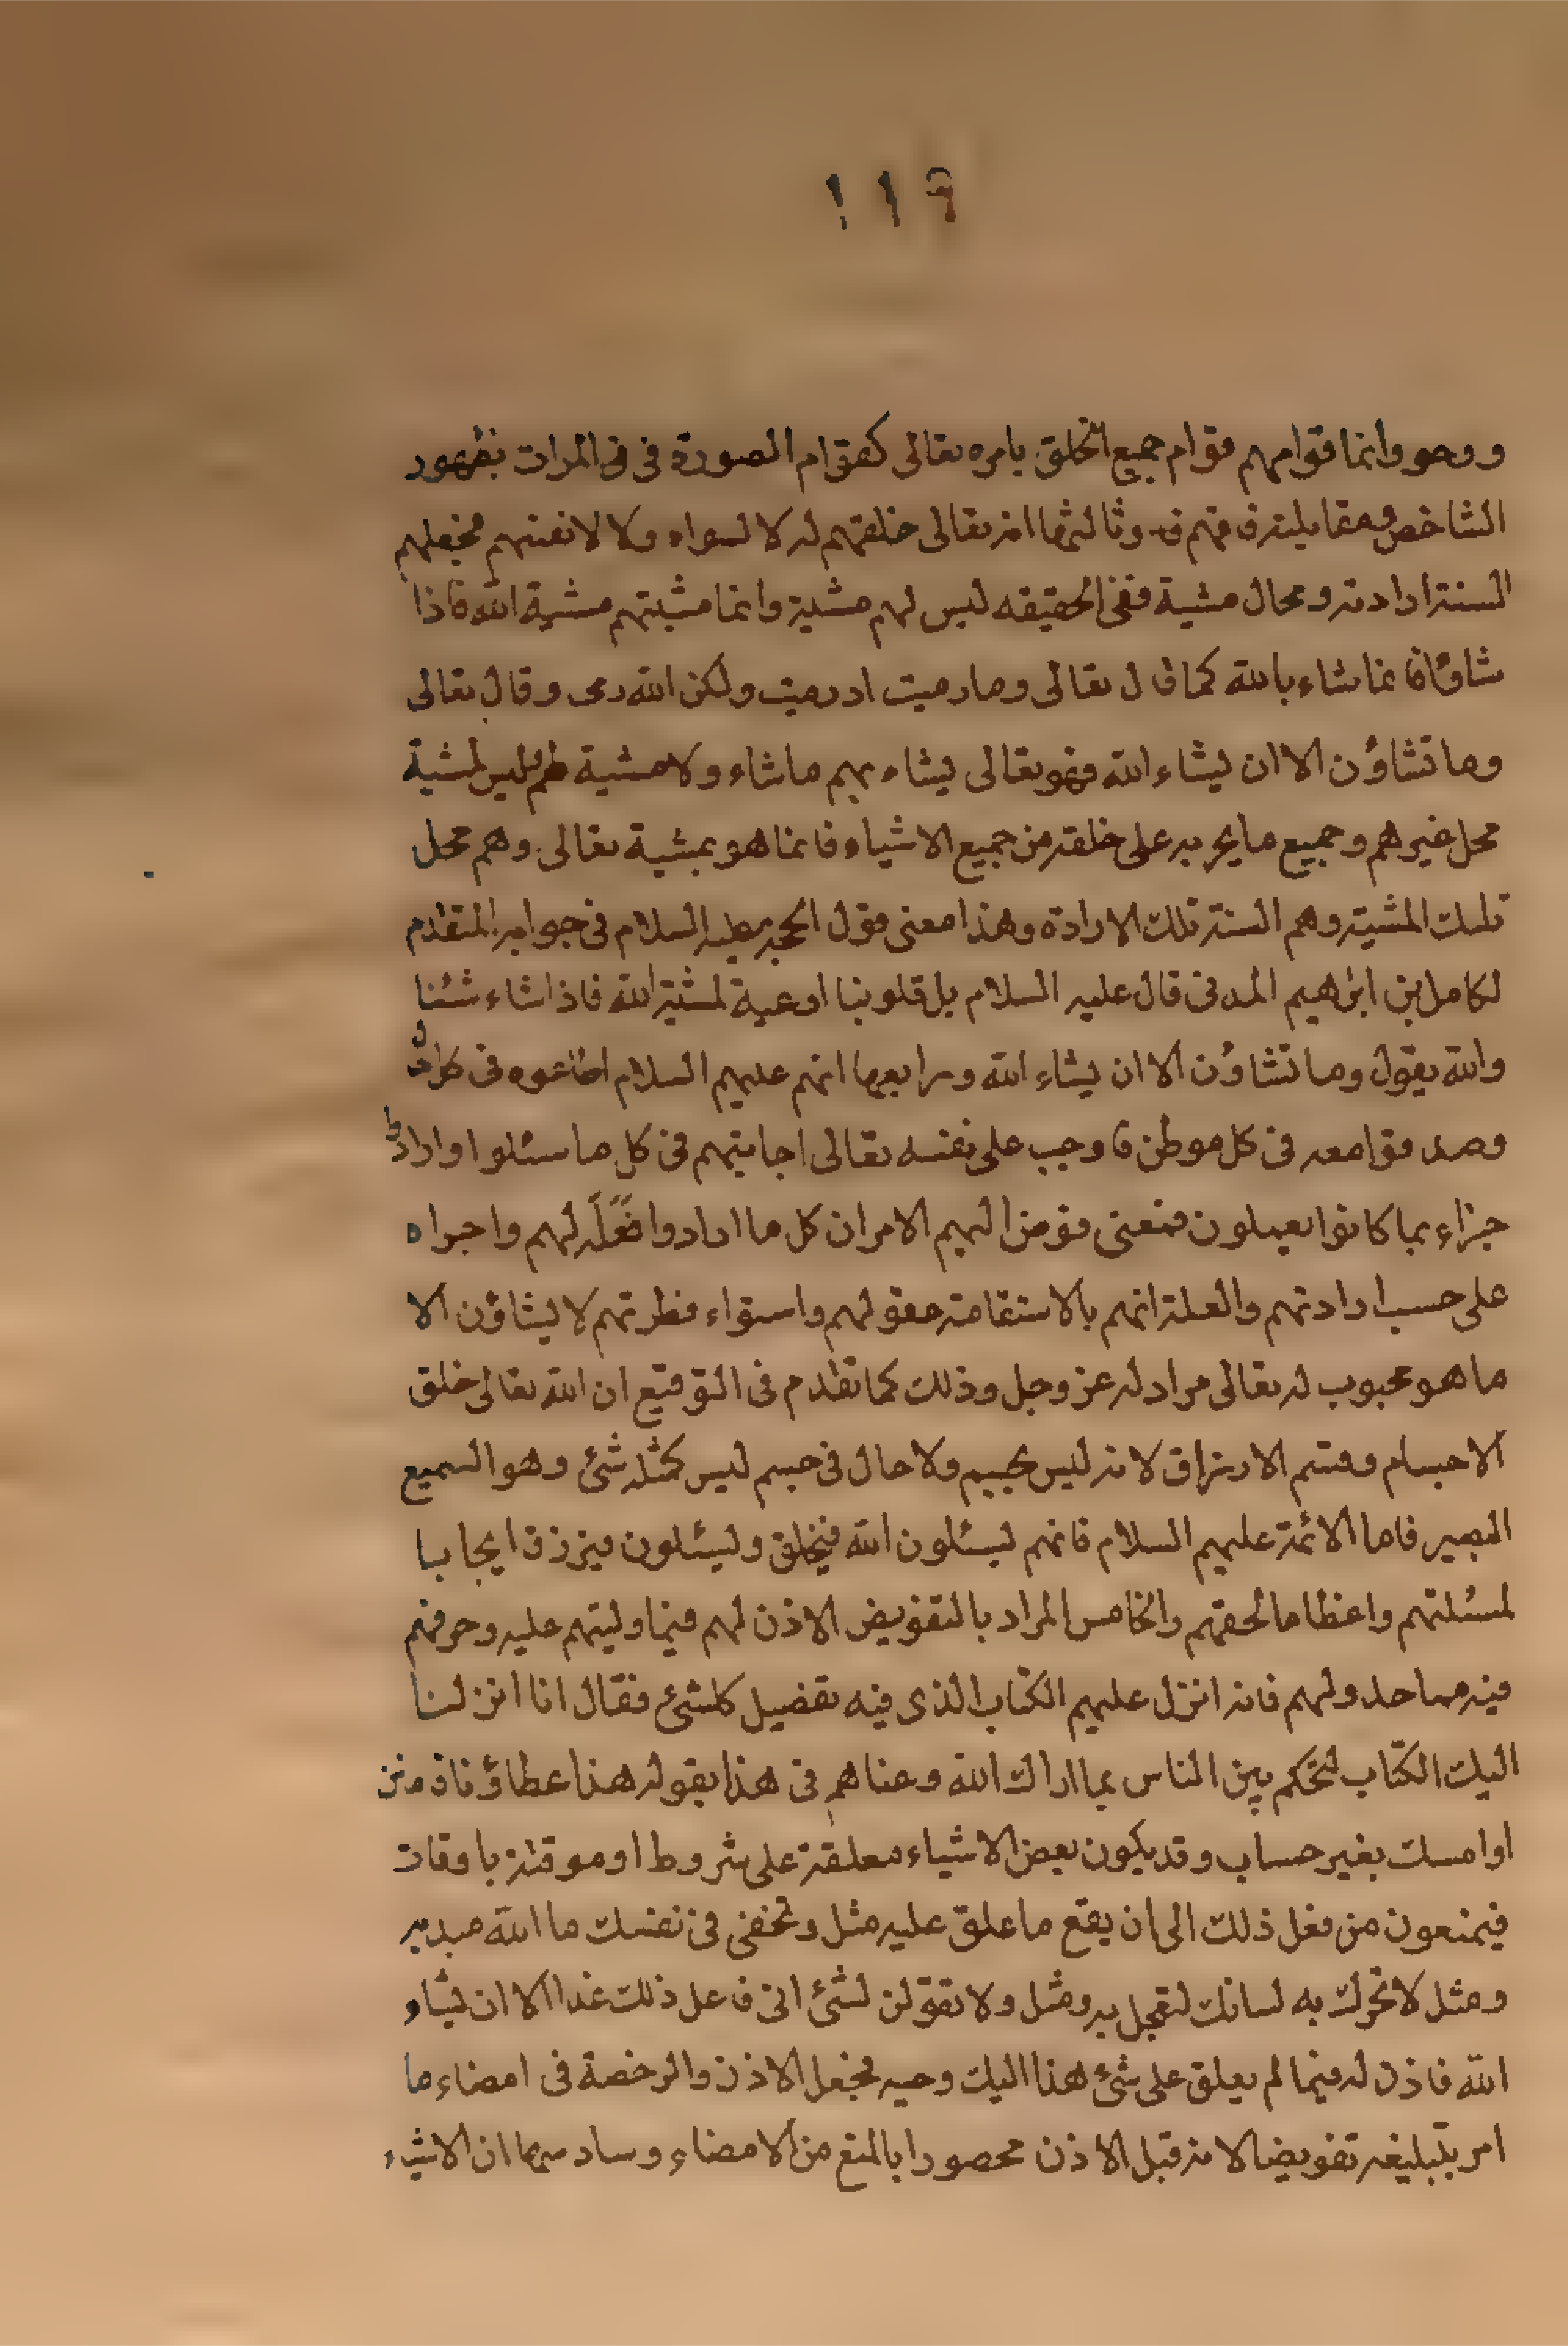 ١١٩
ووهو وانما قوامهم قوام جميع الخلق بامره تعالى كقوام الصورة فى فى المرات بظهور
الشاخص ومقابلته فافهم وثالثها انه تعالى خلقهم له لا لسواه ولا لانفسهم فجعلهم
السنة ارادته ومحال مشية ففى الحقيقه ليس لهم مشية وانما مشيتهم مشية الله فاذا
شاؤا فانما شاء بالله كما قال تعالى وما رميت اذ رميت ولكن الله رمى وقال تعالى
وما تشاؤن الا ان يشاء الله فهو تعالى يشاء بهم ما شاء ولا مشية لهم بل ليس لمشية
محل غيرهم وجميع ما يجريه على خلقه من جميع الاشياء فانما هو بمشية تعالى وهم محل
تلك المشية وهم السنة تلك الارادة وهذا معنى قول الحجة عليه السلام فى جوابه المتقدم
لكامل بن ابرٰهيم المدنى قال عليه السلام بل قلوبنا اوعية لمشية الله فاذا شاء شئنا
والله يقول وما تشاؤن الا ان يشاء الله ورابعها انهم عليهم السلام اطاعوه فى كل
وصدقوا معه فى كل موطن فاوجب على نفسه تعالى اجابتهم فى كل ما سئلوا وارادوا
جزاء بما كانوا يعملون فمعنى فوض اليهم الامر ان كل ما ارادوا فعله لهم واجراه
على حسب ارادتهم والعلة انهم بالاستقامة عقولهم واستواء فطرتهم لا يشاؤن الا
ما هو محبوب له تعالى مراد له عز وجل وذلك كما تقدم فى التوقيع ان الله تعالى خلق
الاجسام وقسم الارزاق لانه ليس بجسم ولا حال فى جسم ليس كمثله شئ وهو السميع
البصير فاما الائمة عليهم السلام فانهم ليسئلون الله فيخلق وليسئلون فيرزق ايجابا
لمسئلتهم واعظاما لحقهم والخامس المراد بالتفويض الاذن لهم فيما وليتهم عليه وحرفهم
فيه مما حد ولهم فانه انزل عليهم الكتاب الذى فيه تفضيل كلشئ فقال انا انزلنا
اليك الكتاب لتحكم بين الناس بما اراك الله وعناهم فى هذا بقوله هذا عطاؤنا فامنن
او امسك بغير حساب وقد يكون بعض الاشياء معلقة على شروط او موقتة باوقات
فيمنعون من فعل ذلك الى ان يقع ما علق عليه مثل وتخفى فى نفسك ما الله مبديه
ومثل لا تحرك به لسانك لتعجل به ومثل ولا تقولن لشئ انى فاعل ذلك غدا الا ان يشاء
الله فاذن له فيما لم يعلق على شئ هذا اليك وحيه فجعل الاذن والرخصة فى امضاء ما
امر بتبليغه تفويضا لانه قبل الاذن محصورا بالمنع من الامضاء وسادسها ان الاشياء